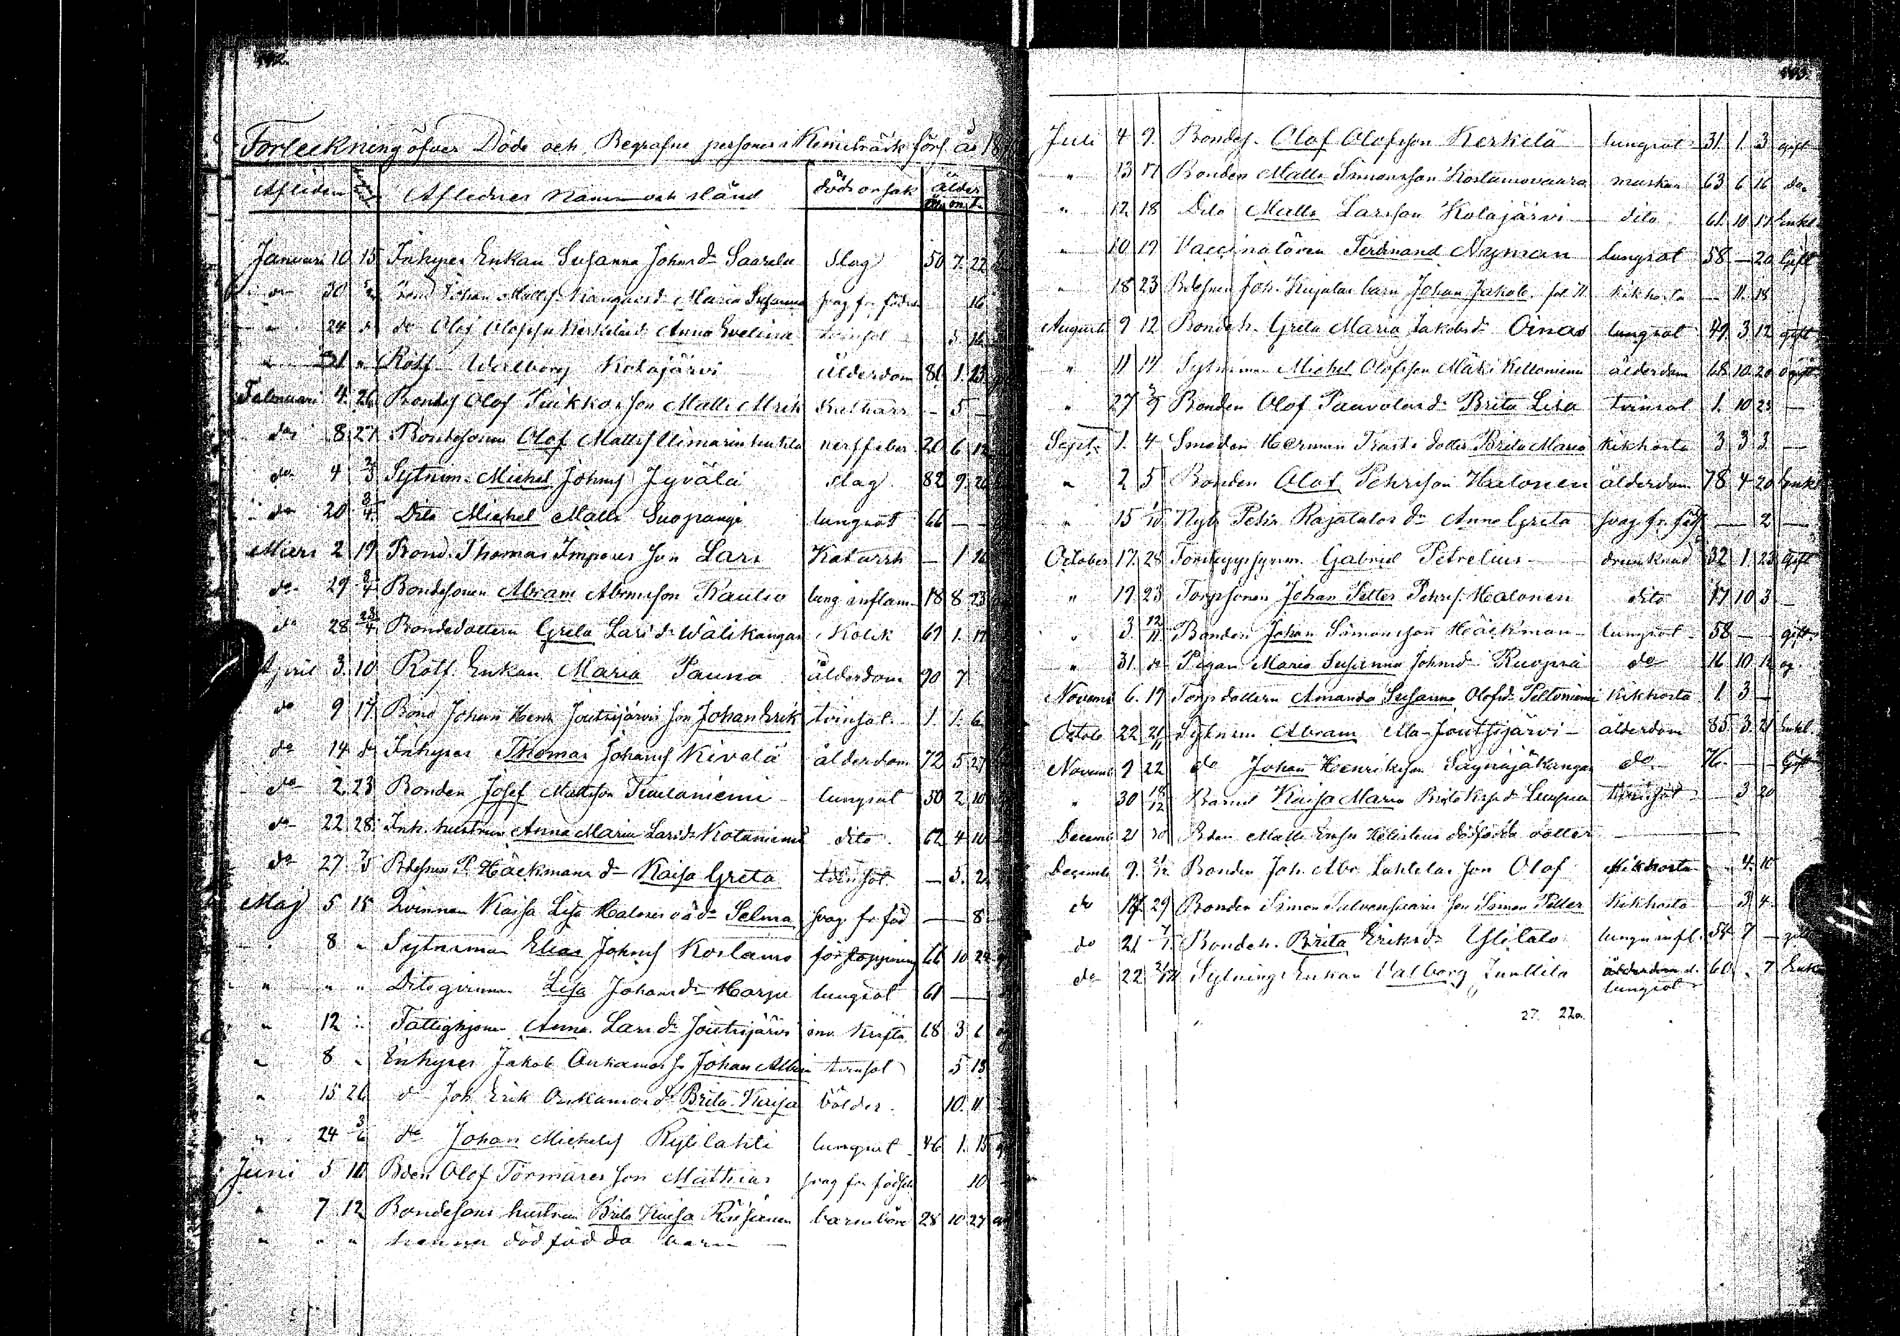 Förteckning öfver Döde och Begrafne personer i Kemiträsk förs. år 18
Afliden Aflednes Namn och stånd dödsorsak ålder
Januari 10 15 Inhyses Enkan Susanna Johansdr Saarela slag 50 7 22
do 30 Bond Johan Matts Kangas dr Maria Susanna svag fr födseln 16
" 24 do do Olof Olofsson Kerkelä dr Anna Evelina tvinsot 3 16
" 31 " Rotf Walborg Kotajärvi ålderdom 80 1 23
Februari 4 26 Bondes Olof Pukkas son Matts Ulrik Kathars – 5 –
do 8 27 Bondesonen Olof Mattss nerffeber 20 6 12
do 4 2/3 Sytnim. Michel Johans Jyvälä slag 82 9 20
do 20 3/4 Dito Michel Matts Suopangi lungsot 66 – –
Mars 2 19 Bond. Thomas Impones son Lars Katarrh – 1 16
do 29 3/4 Bondesonen Abram Abramsson Kautio lung inflam 18 8 23
do 28 23/4 Bondedottern Greta Larsdr Wälikangas Kolik 69 1 17
April 3 10 Rotf. Enkan Maria Pauna ålderdom 90 7
do 9 17 Bond Johan Henr Joutsijärvis son Johan Erik tvinsot 1 1 6
do 14 do Inhyses Thomas Johans Kivelä ålderdom 72 5 27
do 2 23 Bonden Josef Mattsson lungsot 50 2 10
do 22 28 Inh. hustrun Anna Maria Larsdr Kotaniemi dito 62 4 10
do 27 3/5 Bdesonen P. Häckmans dr Kaisa Greta tvinsot – 3 2
Maj 5 15 Qvinnan Kaisa Lisa Halones dr Selma svag fr föd – – 8
" 8 " Sytnisman Elias Johans Kostamo förstoppning 66 10 24
" " " Dito qvinnan Lisa Johansdr Harju lungsot 61 – –
" 12 " Fattighjon Anna Larsdr Joutsijärvi inv Kräfta 68 3 6
" 8 " Inhyses Jakob Onkamos so Johan Albin tvinsot 5 13
" 15 26 do Joh Erik Onkamos dr Brita Kaisa bölder 10 11
" 24 3/6 do Johan Michels Kylilahti lungsot 46 1 15
Juni 5 10 Bden Olof Törmänes son Mathias svag fr födseln 10
" 7 12 Bondesons hustrun Brita Kaisa Räisänen barnsbörd 28 10 27
" " " hennes dödfödda barn –
Juli 4 9 Bondes. Olof Olofsson Kerkelä lungsot 31 1 3 gift
" 13 17 Bonden Matts Simonsson Kostamovaara maskar 63 6 16 do
" 12 18 Dito Matts Larsson Kotajärvi dito 61 10 17 Enkl
" 10 19 Vaccinatören Ferdinand Nyman lungsot 58 – 20 Gift
" 18 23 Bdesonen Joh. Kujalas barn Johan Jakob kikhosta – 11 18
Augusti 9 12 Bondeh. Greta Maria Jakobsdr Oinas lungsot 49 3 12 gift
" 11 14 Sytnisman Michel Olofsson ålderdom 68 10 20 ogift
" 27 2/9 Bonden Olof Paavolas dr Brita Lisa tvinsot 1 10 23 –
Sept 1 4 Smeden Herman Trasts dotter Brita Maria kikhosta 3 3 3 –
" 2 5 Bonden Olof Pehrsson Halonen ålderdom 78 4 20 Enkl
" 15 1/10 Nyb Petter Rajatalos dr Anna Greta svag fr föds – – 2 –
October 17 28 Gabriel Petrelius drunknad 32 1 23 Gift
" 19 23 Torpsonen Johan Petter Pehrs. Halonen dito 17 10 3 –
" 3 12/11 Bonden Johan Simonsson Häckman lungsot 58 – gift
" 31 do Pigan Maria Susanna Johansdr Ruopsa do 16 10 12 og
Novemb 6 19 Torpsdottern Amanda Susanna Olofsdr Peltoniemi Kikhosta 1 3 –
Octob 22 21/11 Sytnim Abram Ala-Joutsijärvi ålderdom 85 3 21 Enkl
Novemb 9 22 do Johan Henriksson do 76 – – Gift
" 30 18/12 Barnet Kaisa Maria tvinsot – 3 20
Decemb 21 30 Bden Matts dödfödda dotter –
Decemb 9 Bonden Joh. Abr. Lahtelas son Olof Kikhosta – 4 10
do 14 29 Bonden Simon son Simon Petter Kikhosta – 3 4
do 21 Bondeh. Brita Eriksdr Ylitalo lunginfl. 54 7 – gift
do 22 Sytnings Enkan Valborg Junttila ålderdom d. lungsot 60 " 7 Enka
27. 27a.